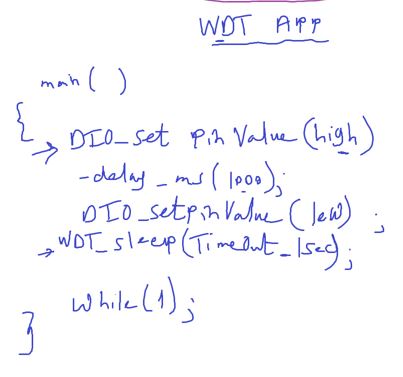 WDT APP
main( )
{
→ DIO_set pin Value(high)
-delay_ms(1000);
DIO_setpinValue(low);
→ WDT_sleep(TimeOut_1sec);
while(1);
}